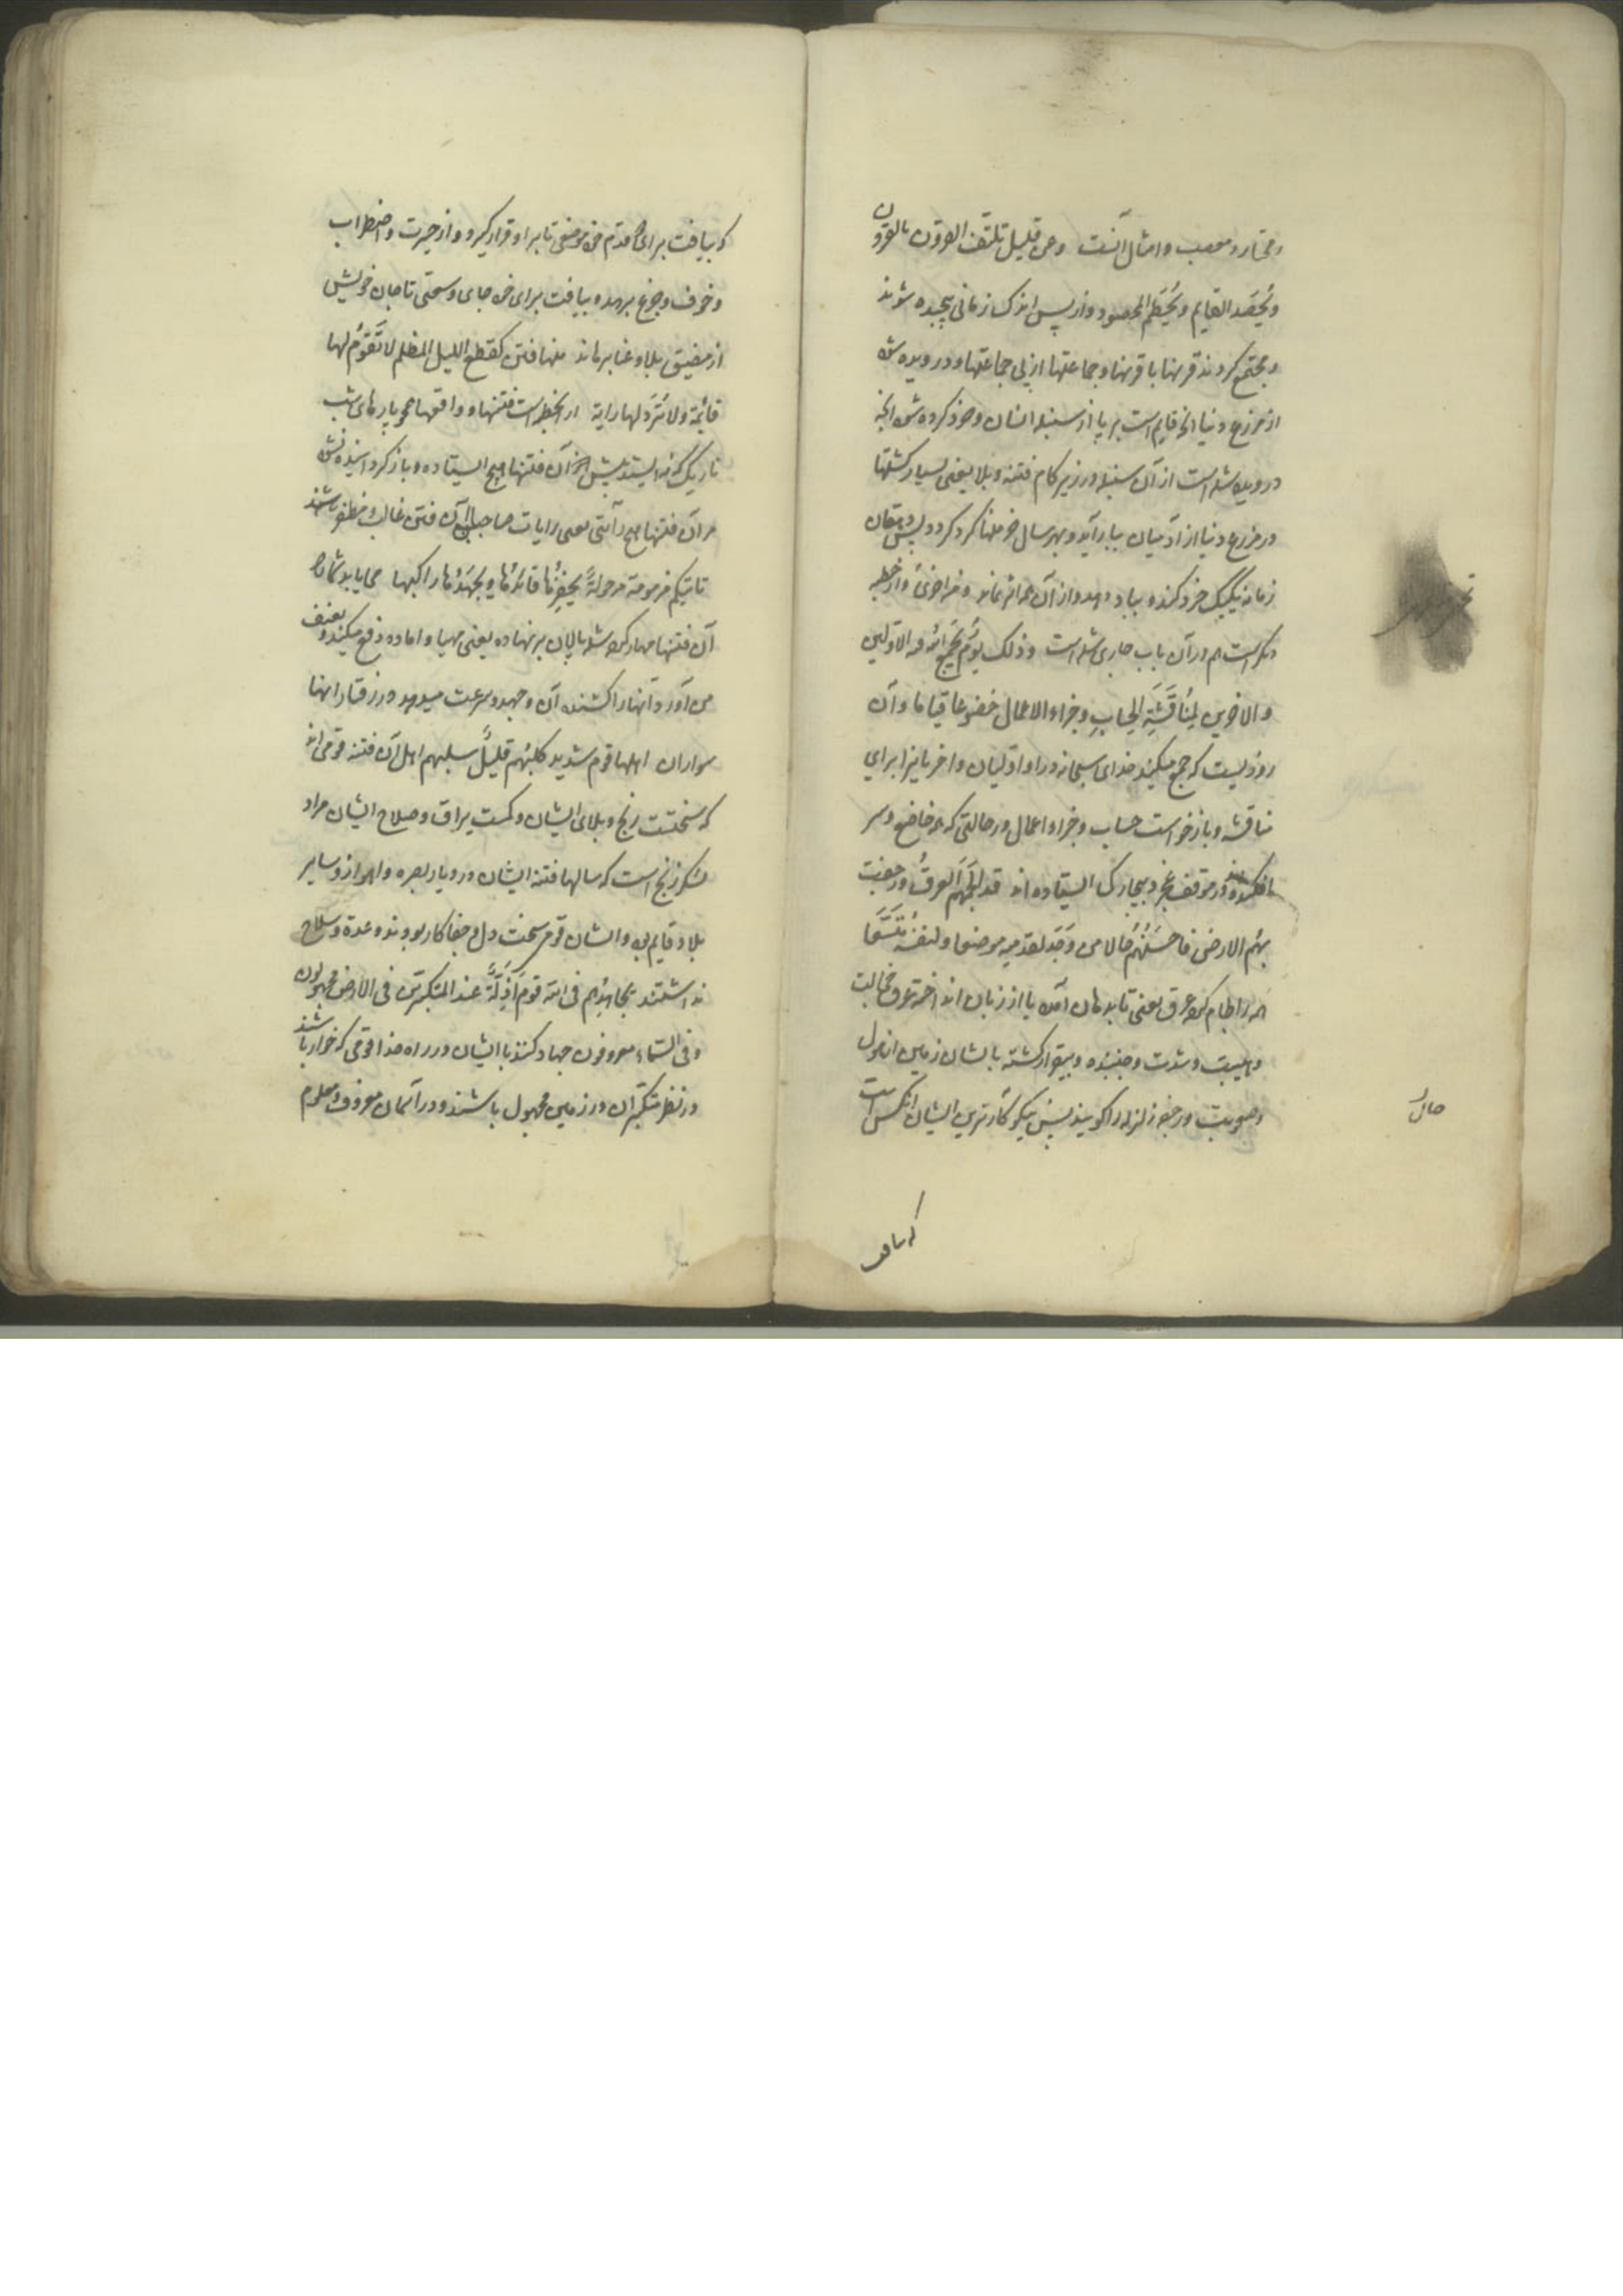 و مختار و مصعب و امثال آنست وعن قلیل تلتف القرون بالقرون
و یُحصَد القایم و یُحطَم المحصود و از پس اندک زمانی پیچیده شوند
و مجتمع کردند قرنها با قرنها و جماعتها از پی جماعتها و درویده شود
از مزرع دنیا آنچه قایم است بر پا از سنبله انسان و خرد کرده شود آنچه
درویده شده است از آن سنبله در زیر کام فتنه و بلا یعنی بسیار کشتها
در مزرع دنیا از آدمیان ببار آید و بهر سال خرمنها کرد کردد پس دهقان
زمانه یکیک خرد کند و بباد دهد و از آن همه اثر نماند و من اخری و از خطبه
دیگر است هم در آن باب جاری شده است و ذلک یوم یجمع الله فیه الاولین
و الاخرین لِنِقاشِ الحساب و جزاء الاعمال خضوعا قیاما و آن
روزیست که جمع میکند خدای سبحانه در او اولیان و اخریانرا برای
مناقشه و بازخواست حساب و جزاء اعمال در حالتی که همه خاضع و سر
افکنده در موقف عجز و بیچارکی ایستاده اند قد الجمهم العرق و رجفت
بهم الارض فاحسنهم حالا من وجد لقدمیه موضعا و لنفسه مُتَّسَعا
همه را لجام کرده عرق یعنی تا بدهان آمده یا از زبان انداخته عرق خجالت
و هیبت و شدت و جنبیده و بیقرار کشته بایشان زمین از هول
و صعوبت و رجفه زلزله را کویند پس نیکو کارترین ایشان آنکس است
حال
که بیافت
که بیافت برای قدم خود موضعی تا بر او قرار کیرد و از حیرت و اضطراب
و خوف و جزع برهد و بیافت برای خود جای وسعتی تا جان خویش
از مضیق بلا و عنا برهاند منها فتن کقطع اللیل المظلم لا تَقُوم لها
قائمة ولا تُرَدّ لها رایة از انخطبه است فتنها و واقعها همچو پارهای شب
تاریک که نه ایستد پیش آن فتنها هیچ ایستاده و باز کردانیده نشود
مر آن فتنها هیچ رایتی یعنی رایات صاحبان آن فتن غالب و مظفر باشند
تاتیکم مزمومة مرحولةً یحفزها قائدها و یجهدها راکبها می اید بشما
آن فتنها مهار کرده شده پالان بر نهاده یعنی مهیا و اماده دفع میکند و بعنف
می آورد آنها را کشنده آن و جهد و سرعت میدهد در رفتار انها
سواران اهلها قوم شدید کلبُهم قلیلٌ سلبهم اهل آن فتنه قومی اند
که سختست رنج و بلای ایشان و کمست یراق و صلاح ایشان مراد
لشکر زنج است که سالها فتنه ایشان در دیار بصره و اهواز و سایر
بلاد قایم بود و ایشان قومی سخت دل و جفا کار بودند و عدة و سلاح
نداشتند یجاهدهم فی الله قوم اَذِلّةٌ عند المتکبرین فی الارض مجهولون
و فی السماء معروفون جهاد کنند با ایشان در راه خدا قومی که خوار باشند
در نظر متکبران در زمین مجهول باشند و در آسمان معروف و معلوم